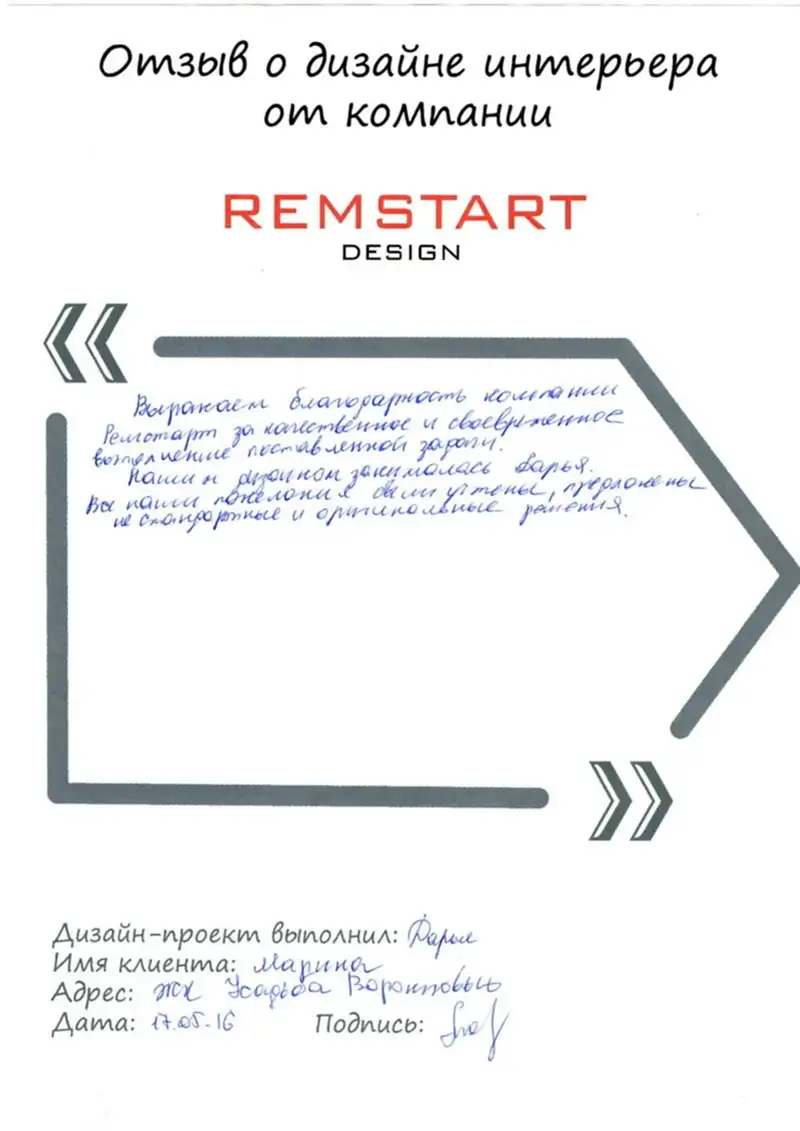 Отзыв о дизайне интерьера
от компании
REMSTART
DESIGN
Выражаем благодарность компании
Ремстарт за качественное и своевременное
воплощение поставленной задачи.
Нашим дизайном занималась Дарья.
Все наши пожелания были учтены, предложены
не стандартные и оригинальные решения.
Дизайн-проект выполнил: Дарья
Имя клиента: Марина
Адрес: ЖК Усадьба Воронцовых
Дата: 17.05.16 Подпись: